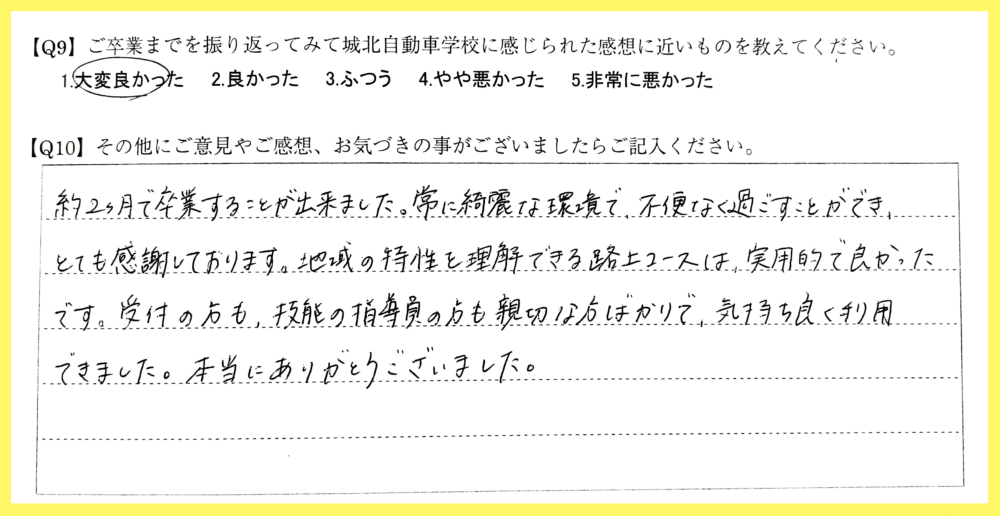 【Q9】ご卒業までを振り返ってみて城北自動車学校に感じられた感想に近いものを教えてください。
1.大変良かった 2.良かった 3.ふつう 4.やや悪かった 5.非常に悪かった
【Q10】その他にご意見やご感想、お気づきの事がございましたらご記入ください。
約2ヶ月で卒業することが出来ました。常に綺麗な環境で、不便なく過ごすことができ、
とても感謝しております。地域の特性を理解できる路上コースは、実用的で良かった
です。受付の方も、技能の指導員の方も親切な方ばかりで、気持ち良く利用
できました。本当にありがとうございました。